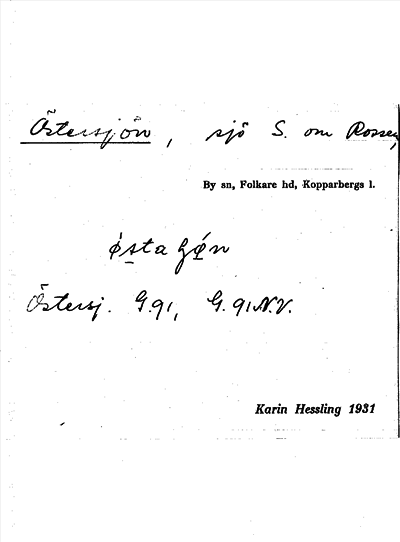 Östersjön, sjö S. om Rossen,
By sn, Folkare hd, Kopparbergs l.
Östersj. G.91, G.91 N.V.
Karin Hessling 1931